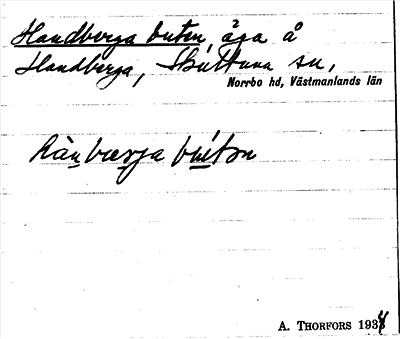 Handberga buten, äga å
Handberga, Skultuna sn,
Norrbo hd, Västmanlands län
hànbærja bu̇tən
A. THORFORS 1934